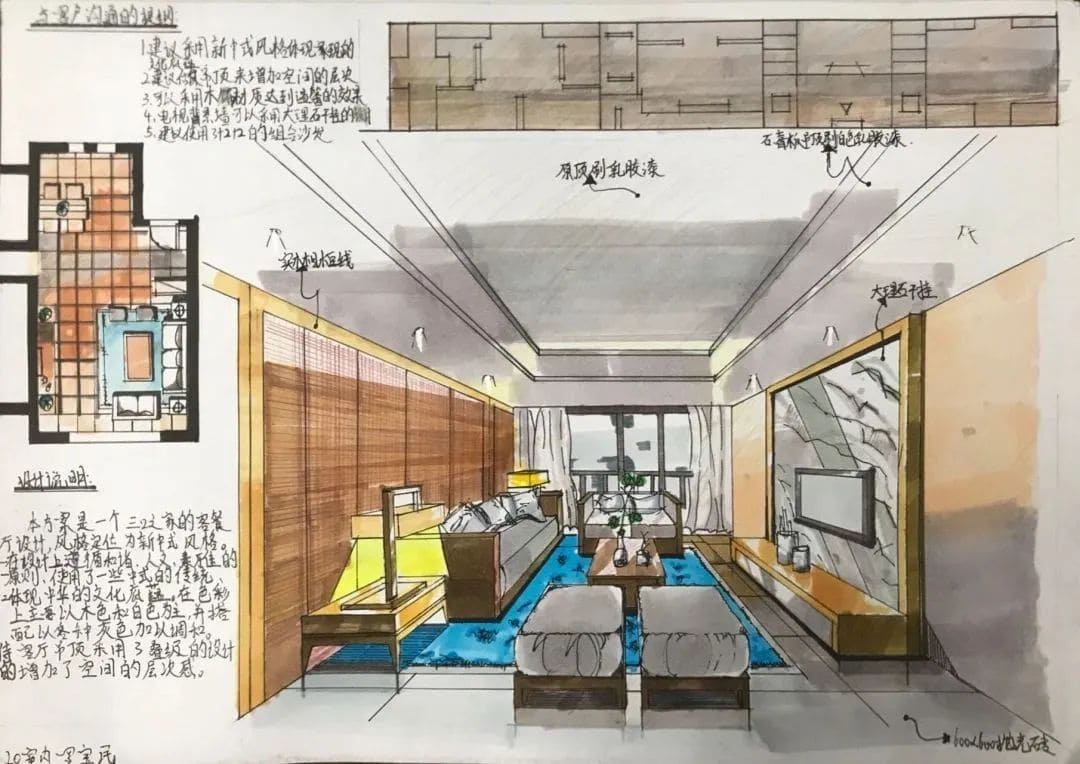 与客户沟通的提纲:
1.建议采用新中式风格体现表现的
文化底蕴
2.建议做吊顶来增加空间的层次
3.可以采用木质材质达到造餐的效果
4.电视背景墙可以采用大理石干挂的
5.建议使用3+2+2的组合沙发
石膏板吊顶刷白色乳胶漆.
原顶刷乳胶漆
实木木框线
大理石干挂
设计说明:
本方案是一个三口之家的客餐
厅设计,风格定位为新中式风格。
在设计上遵循和谐、人文、素雅的
原则,使用了一些中式的传统,
体现中华的文化底蕴。在色彩
上主要以木色和白色为主,并搭
配以冬种灰色加以调和。
客厅吊顶采用了叠级的设计
的增加了空间的层次感。
600x600抛光砖
20室内